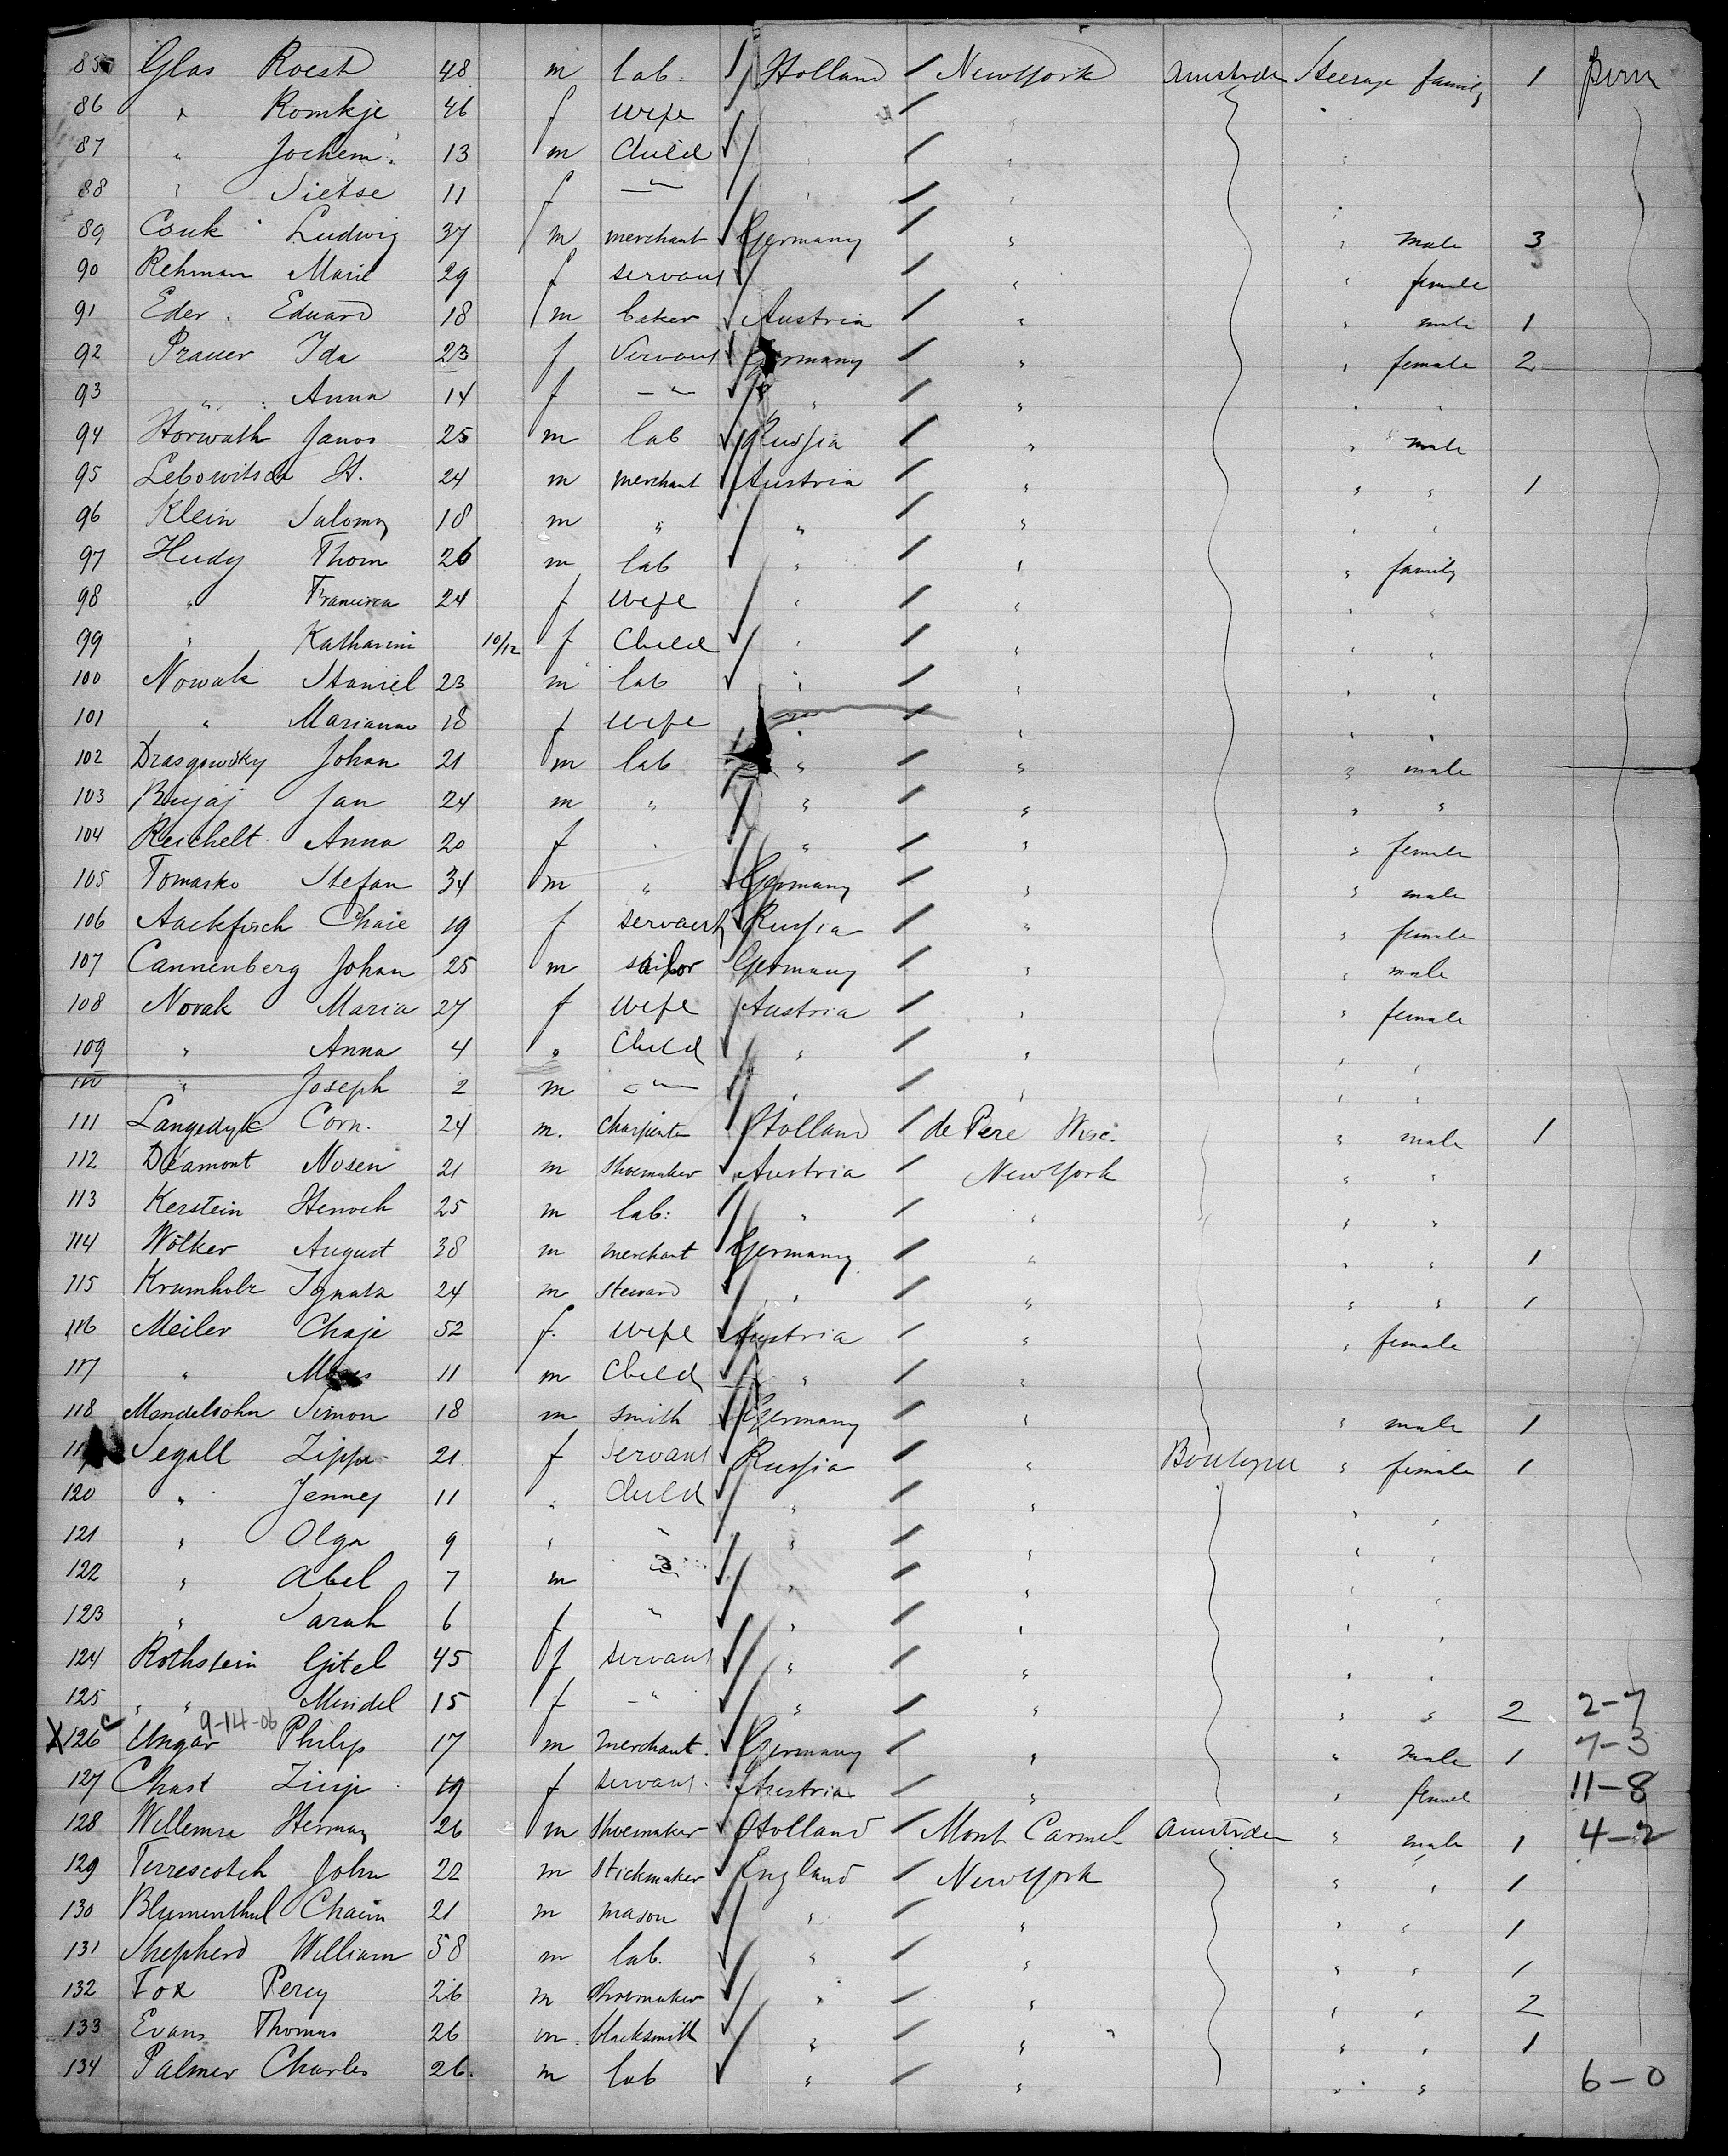 85 Glas Roest 48 m lab. Holland New York Amstrdm Steerage family 1
86 " Romkje 46 f wife " " "
87 " Jochem 13 m Child " " "
88 " Sietse 11 f —"— " " "
89 Couk Ludwig 37 m merchant Germany " " male 3
90 Rehman Marie 29 f servant " " female
91 Eder Eduard 18 m baker Austria " " male 1
92 Prauer Ida 23 f Servant Germany " " female 2
93 " Anna 14 f —"— " " " "
94 Horwath Janos 25 m lab Russia " " male
95 Lebowitsch H. 24 m merchant Austria " " " 1
96 Klein Salomon 18 m " " " " "
97 Hudy Thom 26 m lab " " " family
98 " 24 f wife " " " "
99 " Katharini 10/12 f Child " " " "
100 Nowak Staniel 23 m lab " " " "
101 " Marianna 18 f wife " " " "
102 Drasgowsky Johan 21 m lab " " " male
103 Bujaj Jan 24 m " " " " "
104 Reichelt Anna 20 f " " " " female
105 Tomasko Stefan 34 m " Germany " " male
106 Aackfisch Chaie 19 f servant Russia " " female
107 Cannenberg Johan 25 m sailor Germany " " male
108 Novak Maria 27 f wife Austria " " female
109 " Anna 4 " Child " " " "
110 " Joseph 2 m —"— " " " "
111 Langedyk Corn. 24 m. Charpenter Holland de Pere Wisc. " male 1
112 Diamont Nosen 21 m Shoemaker Austria New York " "
113 Kerstein Henoch 25 m lab: " " " "
114 Wölker August 38 m merchant Germany " " " 1
115 Krumholz Ignatz 24 m Steward " " " " 1
116 Meiler Chaje 52 f. wife Austria " " female
117 " 11 m Child " "
118 Mendelsohn Simon 18 m smith Germany " " male 1
119 Segall Zippe 21 f servant Russia " Boulogne " female 1
120 " Jenney 11 " Child " " " "
121 " Olga 9 " " " " " "
122 " Abel 7 m " " " " "
123 " Sarah 6 f " " " " "
124 Rothstein Gitel 45 f servant " " " "
125 " " Mindel 15 f —" " " " " 2 2-7
9-14-06
X 126 c Ungar Philip 17 m merchant. Germany " " male 1 7-3
127 Chast 19 f servant. Austria " " femel 11-8
128 Willemse Herman 26 m Shoemaker Holland Mont Carmel Amstrdm " male 1 4-2
129 Terrescotch John 22 m Stickmaker England New York " " 1
130 Blumenthul Chaim 21 m mason " " " " 1
131 Shepherd William 58 m lab. " " " " 1
132 Fox Percy 26 m Shoemaker " " " " 2
133 Evans Thomas 26 m. blacksmith " " " " 1
134 Palmer Charles 26. m lab " " " " 6-0